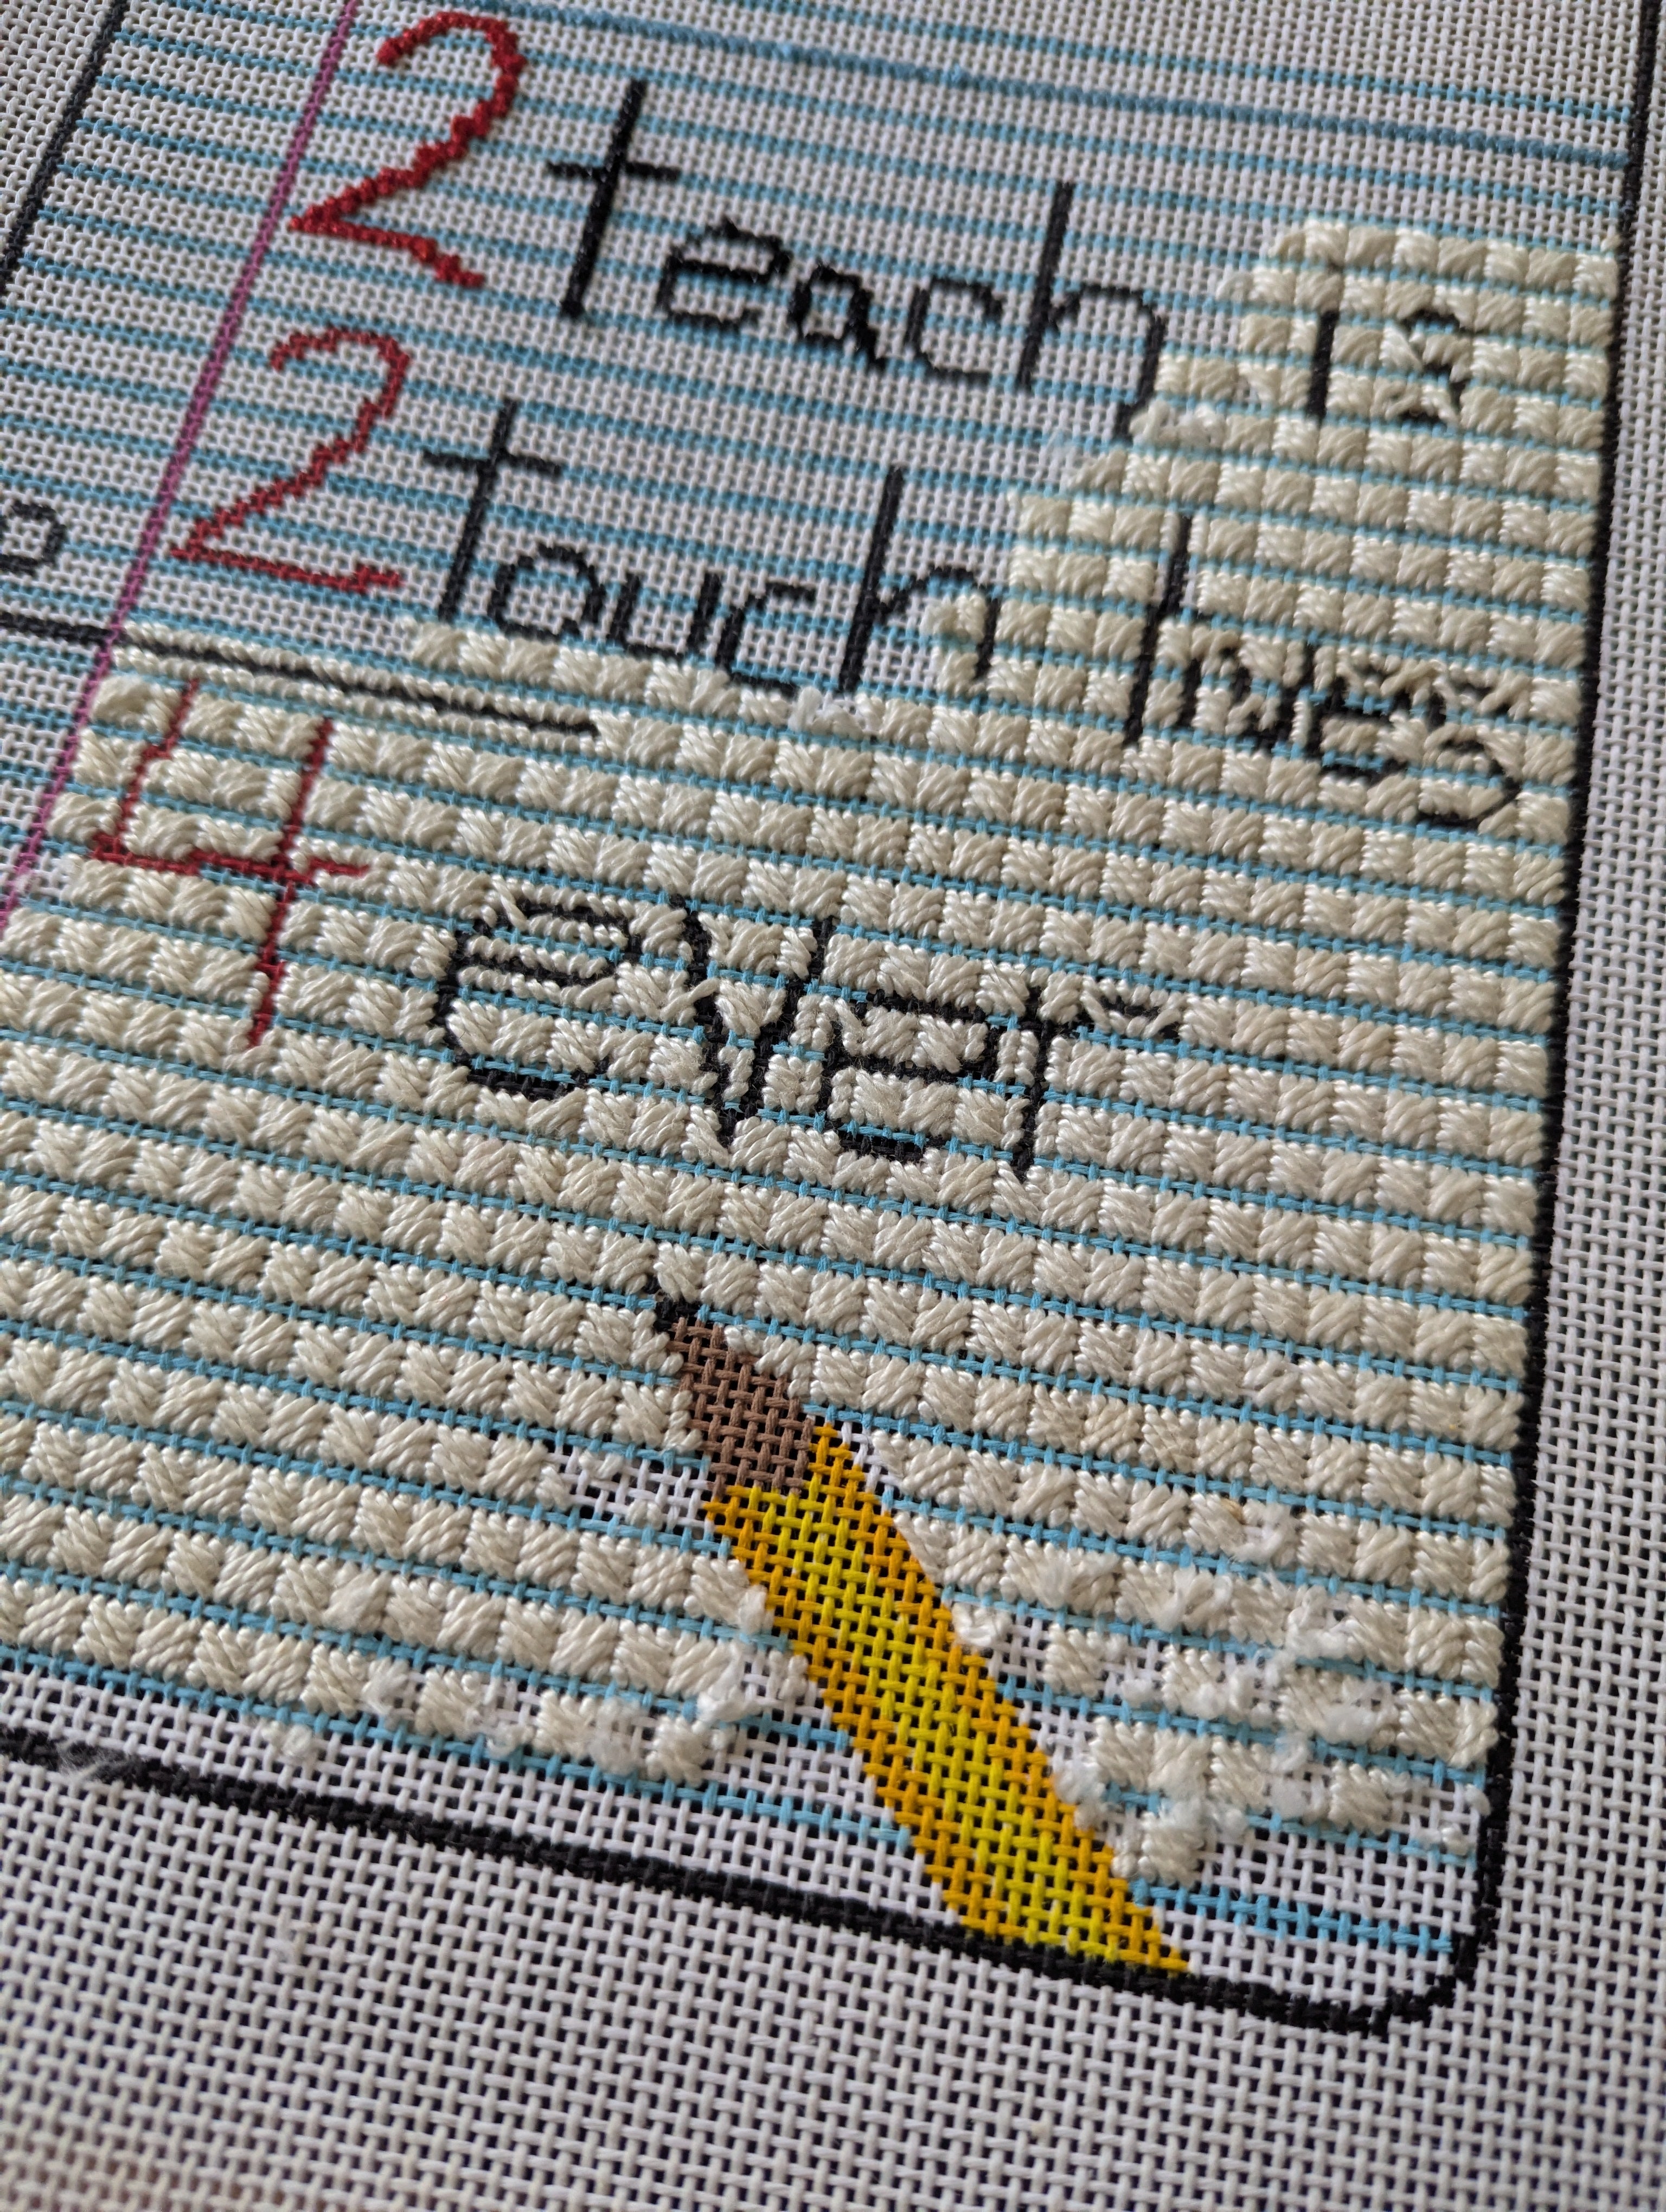 2 teach is
2 touch lives
4 ever